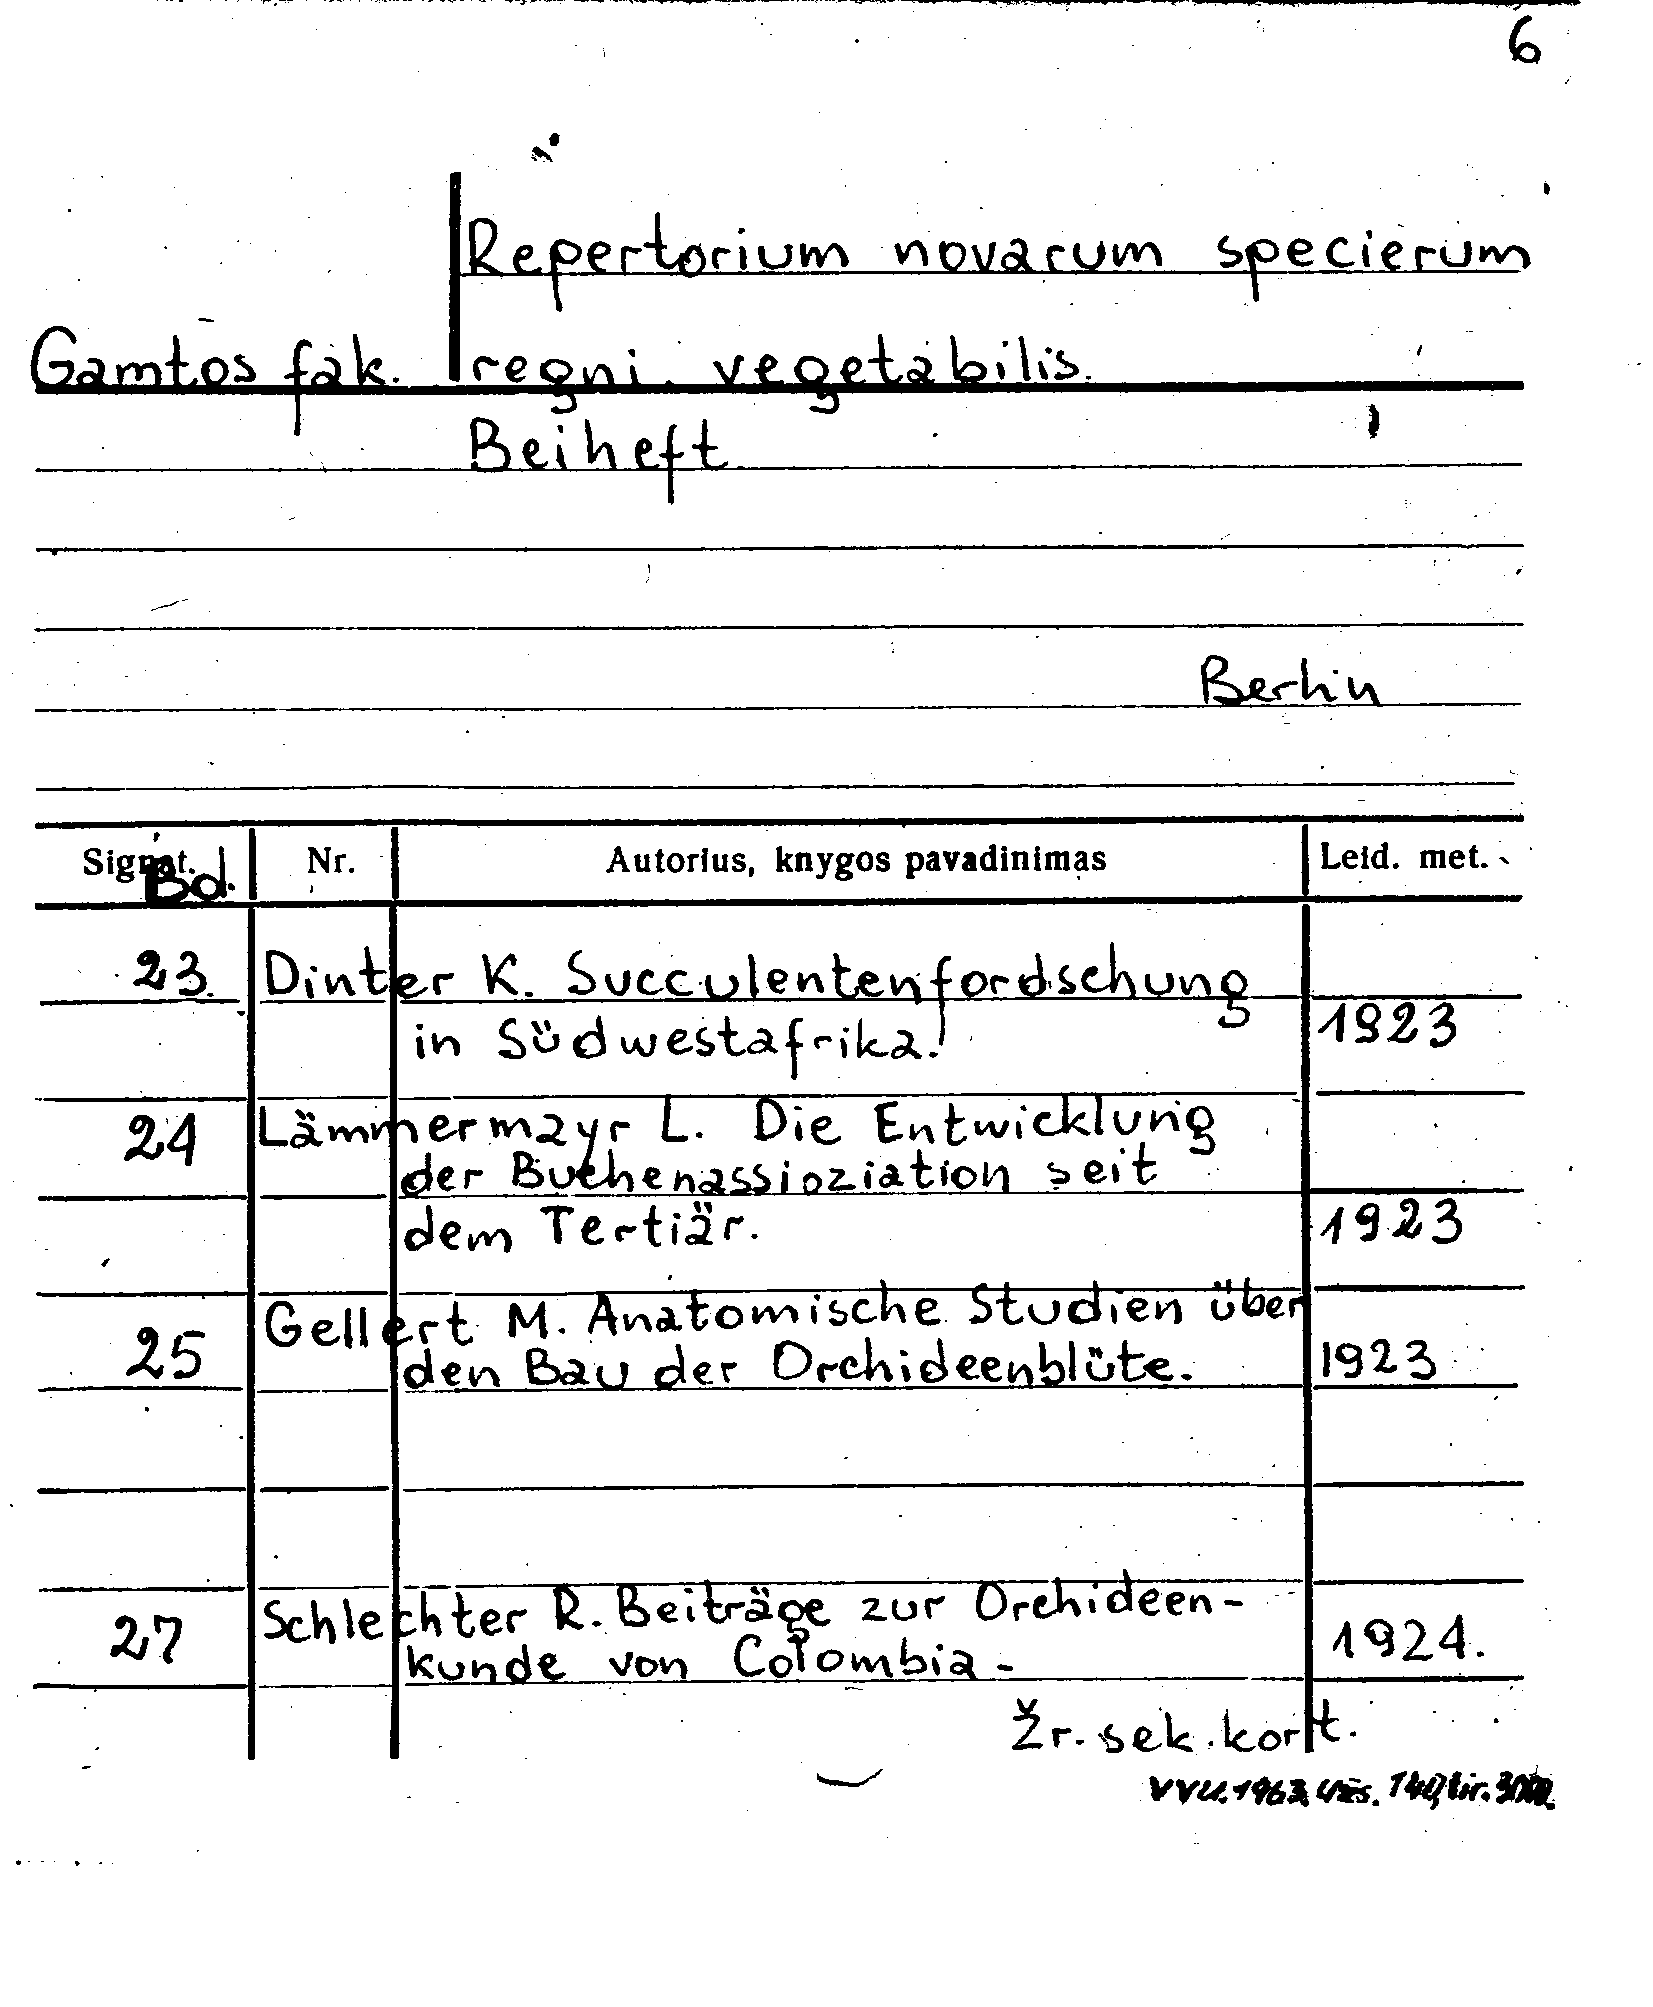 6
Repertorium novarum specierum
Gamtos fak. regni vegetabilis.
Beiheft
Berlin
Signat. Bd. Nr. Autorius, knygos pavadinimas Leid. met.
23. Dinter K. Succulentenfordschung
in Südwestafrika. 1923
24 Lämmermayr L. Die Entwicklung
der Buchenassioziation seit
dem Tertiär. 1923
25 Gellert M. Anatomische Studien über
den Bau der Orchideenblüte. 1923
27 Schlechter R. Beiträge zur Orchideen-
kunde von Colombia- 1924.
Žr. sek. kort.
VVU. 1963. Užs. 140, tir.